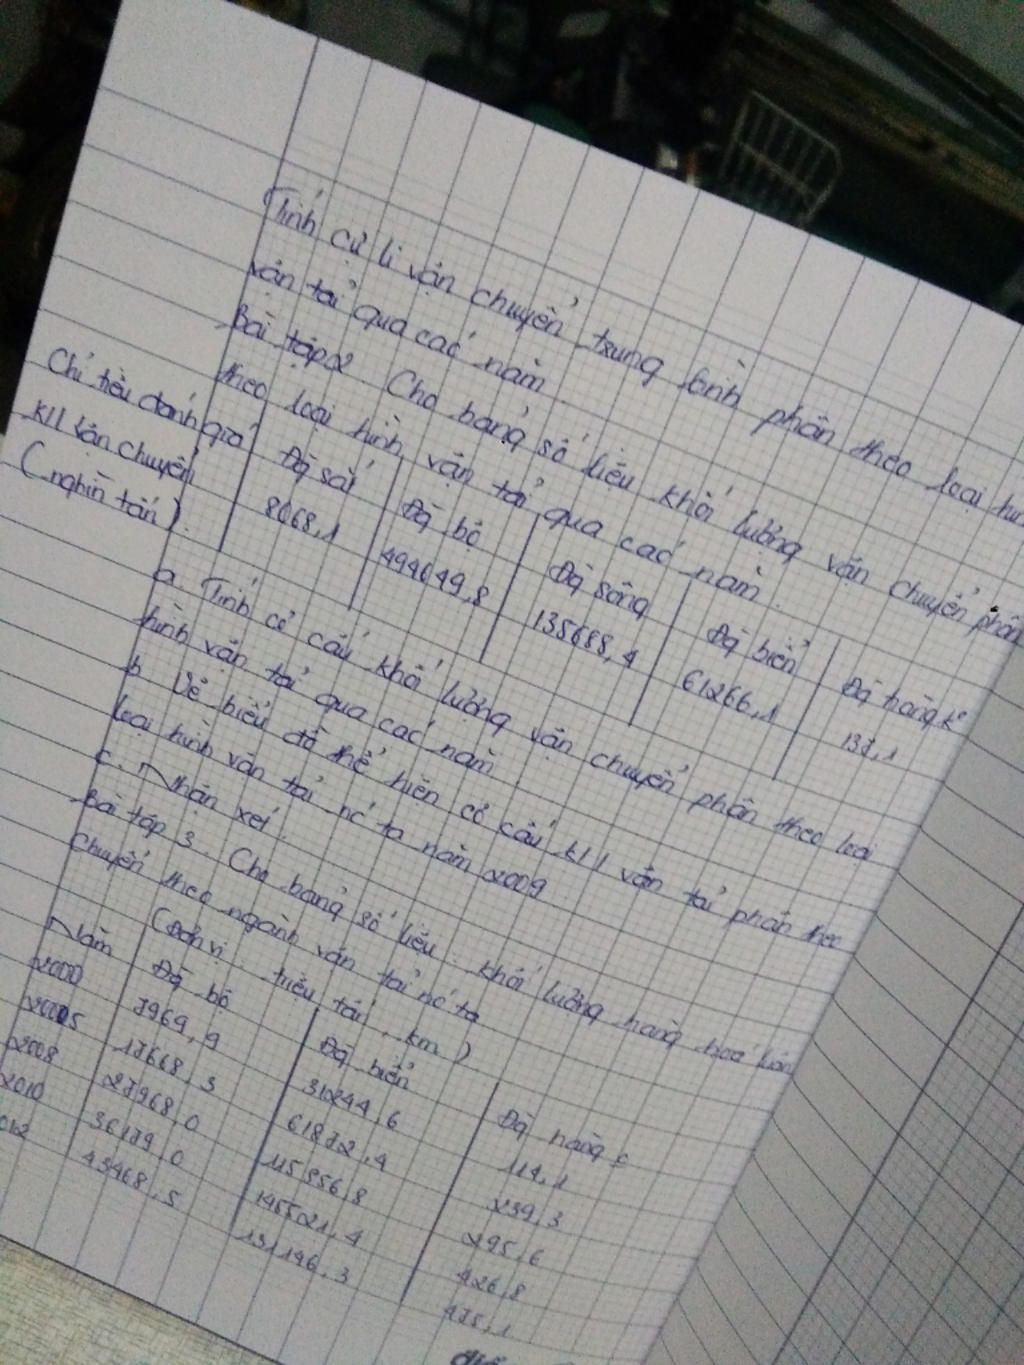 Tính cự li vận chuyển trung bình phân theo loại hình
vận tải qua các năm
Bài tập 2. Cho bảng số liệu khối lượng vận chuyển phân
theo loại hình vận tải qua các năm.
Chỉ tiêu đánh giá Đg sắt Đg bộ Đg sông Đg biển Đg hàng k°
Kll vận chuyển 8068,1 494649,8 135688,4 61266,1 137,1
(nghìn tấn)
a. Tính cơ cấu khối lượng vận chuyển phân theo loại
hình vận tải qua các năm
b. Vẽ biểu đồ thể hiện cơ cấu kll vận tải phân theo
loại hình vận tải nc ta năm 2009
c. Nhận xét.
Bài tập 3. Cho bảng số liệu: khối lượng hàng hoá luân
chuyển theo ngành vận tải nc ta
(Đơn vị: triệu tấn.km)
Năm Đg bộ Đg biển Đg hàng
2000 7969,9 31244,6 114,1
2005 17668,3 61872,4 239,3
2008 27968,0 115956,8 295,6
2010 36179,0 145521,4 426,8
43468,5 131146,3 475,1